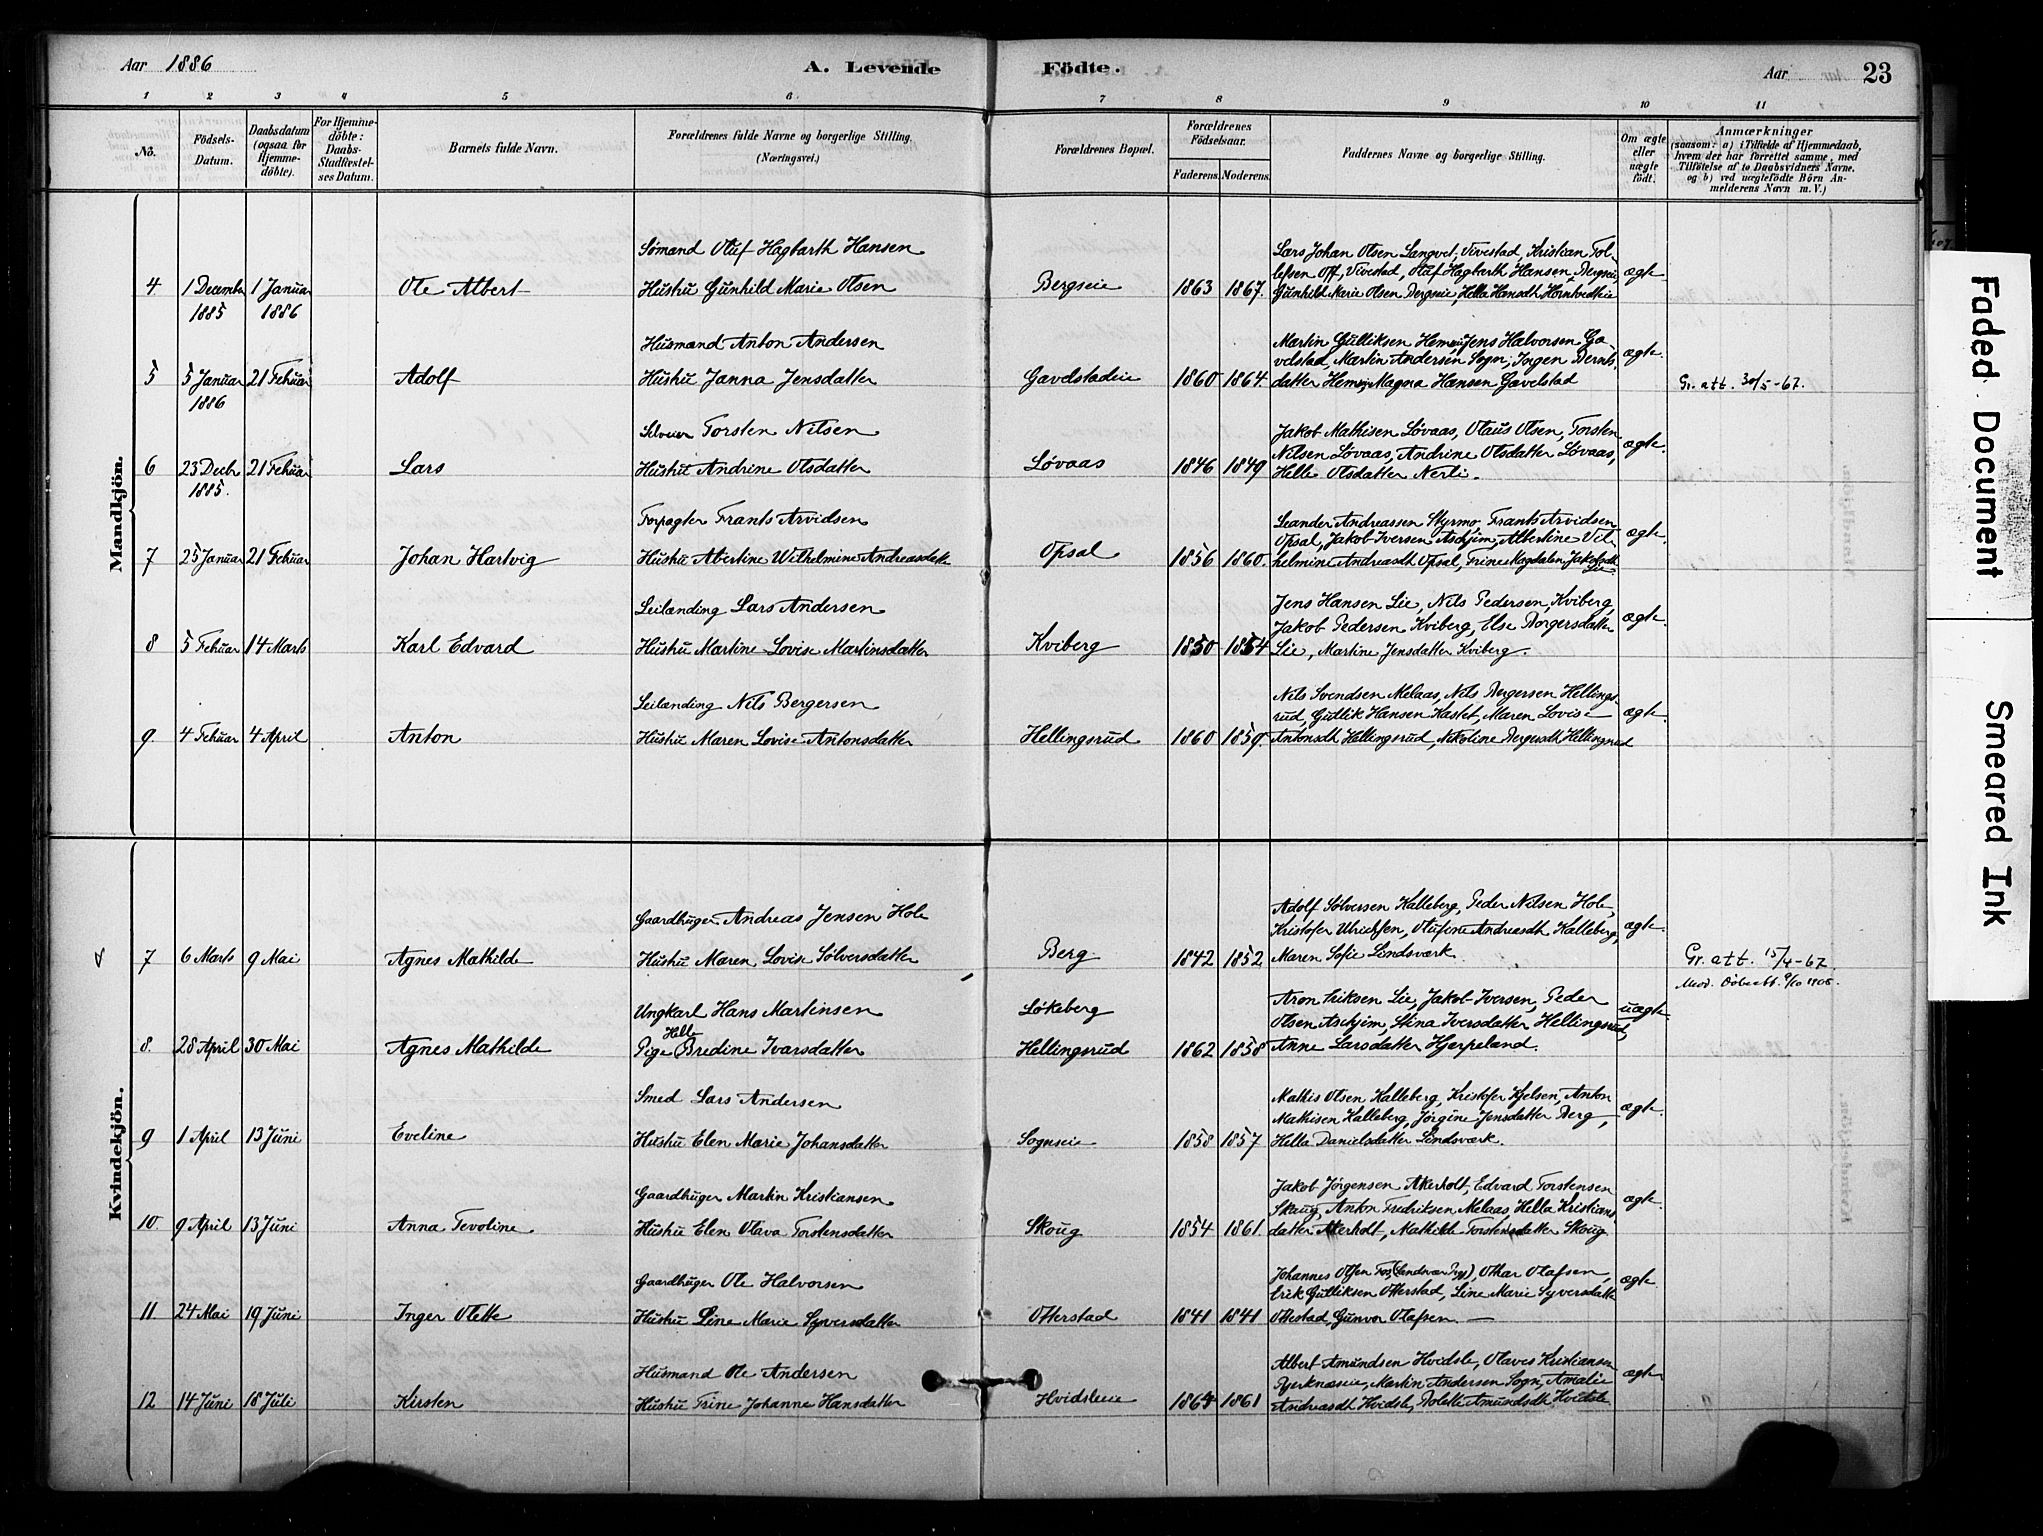 Aar 1886
A. Levende Födte.
Aar 23
1 2 3 4 5 6 7 8 9 10 11
No.
Födsels-
Datum.
Daabsdatum
(ogsaa for
Hjemme-
döbte).
For Hjemme-
döbte:
Daabs-
Stadfæstel-
ses Datum.
Barnets fulde Navn.
Forældrenes fulde Navne og borgerlige Stilling.
(Næringsvei.)
Forældrenes Bopæl.
Forældrenes
Födselsaar.
Faderens. Moderens.
Faddernes Navne og borgerlige Stilling.
Om ægte
eller
uægte
födt.
Anmærkninger
(saasom: a) i Tilfælde af Hjemmedaab,
hvem der har forrettet samme, med
Tilföielse af to Daabsvidners Navne.
og b) ved uægtefödte Börn An-
melderens Navn m. V.)
Mandkjön.
Sømand Oluf Hagbarth Hansen
Lars Johan Olsen Langvet, Vivestad, Kristian Tol-
lefsen Off, Vivestad, Oluf Hagbarth Hansen, Bergseie, ægte.
4 1 Decembr 1 Januar Ole Albert Hustru Gunhild Marie Olsen Bergseie 1863 1867. Gunhild Marie Olsen Bergseie, Hella Hansdtr Hornkvedteie
1885 1886
Husmand Anton Andersen
Martin Gulliksen Hemsø, Jens Halvorsen Ga-
velstad, Martin Andersen Sogn, Ingen Bernts- ægte.
5 5 Januar 21 Febuar Adolf Hustru Janna Jensdatter Gavelstadeie 1860 1864. datter Hemsø, Magna Hansen Gavelstad Gr. att. 30/5-67.
1886
Selveier Torsten Nilsen
Jakob Mathisen Løvaas, Olaus Olsen, Torsten
Nilsen Løvaas, Andrine Olsdatter Løvaas, ægte.
6 23 Decbr 21 Febuar Lars Hustru Andrine Olsdatter Løvaas 1846 1849 Helle Olsdatter Nerli.
1885.
Forpagter Frants Arvidsen
Leander Andreassen Styrmo, Frants Arvidsen
Opsal, Jakob Iversen Askjim, Albertine Vil- ægte.
7 25 Januar 21 Febuar Johan Hartvig Hustru Abertine Wilhelmine Andreasdatter Opsal 1856 1860. helmine Andreasdt Opsal, Trine Magdalen Jakobsdt
Lie
Leilænding Lars Andersen
Jens Hansen Lie, Nils Pedersen, Kviberg,
Jakob Pedersen Kviberg, Else Borgersdatter ægte.
8 5 Febuar 14 Marts Karl Edvard Hustru Martine Lovise Martinsdatter Kviberg 1850 1854 Lie, Martine Jensdatter Kviberg.
Leilænding Nils Bergersen
Nils Svendsen Melaas, Nils Bergersen Hellings-
rud, Gullik Hansen Kastet, Maren Lovise ægte.
9 4 Febuar 4 April Anton Hustru Maren Lovise Antonsdatter Hellingsrud 1860 1859. Antonsdt Hellingsrud, Nikoline Bergersdt Hellingsrud
Kvindekjön.
Gaardbruger Andreas Jensen Hole
Adolf Sølversen Kalleberg, Peder Nilsen Hole,
Kristofer Ulrichsen, Olufine Andreasdt Kalleberg, ægte.
7 6 Marts 9 Mai Agnes Mathilde Hustru Maren Lovise Sølversdatter Berg 1842 1852 Maren Sofie Lindsværk. Gr. att. 15/4-67.
Med. Döbeatt. 9/10 1905.
Ungkarl Hans Martinsen Løkeberg
Aron Eriksen Lie, Jakob Iversen, Peder
Olsen Askjim, Stina Iversdatter Hellingsrud, uægte.
Helle
8. 28 April 30 Mai Agnes Mathilde Pige Bredine Ivarsdatter Hellingsrud 1862 1858 Anne Larsdatter Hjerpeland.
Smed Lars Andersen
Mathis Olsen Kalleberg, Kristofer Kjelsen, Anton
Mathisen Kalleberg, Jørgine Jensdatter Berg, ægte.
9 1 April 13 Juni Eveline Hustru Elen Marie Johansdatter Sogneie 1858 1857 Hella Danielsdatter Lindsværk.
Gaardbruger Martin Kristiansen
Jakob Jørgensen Akerholt, Edvard Torstensen
Skaug, Anton Fredriksen Melaas, Hella Kristians- ægte.
10. 9 April 13 Juni Anna Tevoline Hustru Elen Olava Torstensdatter Skoug 1854 1861. datter Akerholt, Mathilde Torstensdatter Skoug
Gaardbruger Ole Halvorsen
Johannes Olsen, Othar Olafsen,
Erik Gulliksen Otterstad, Line Marie Syversdatter ægte.
11. 24 Mai 19 Juni Inger Olette Hustru Line Marie Syversdatter Otterstad 1841 1841 Otterstad, Gunvor Olafsen.
Husmand Ole Andersen
Albert Amundsen Hvidsle, Olaves Kristiansen
Bjerknæseie, Martin Andersen Sogn, Amalie ægte
12 14 Juni 18 Juli Kirsten Hustru Trine Johanne Hansdatter Hvidsleeie 1864 1861 Andreasdt Hvidsle, Bolette Amundsdt Hvidsle
Faded Document
Smeared Ink